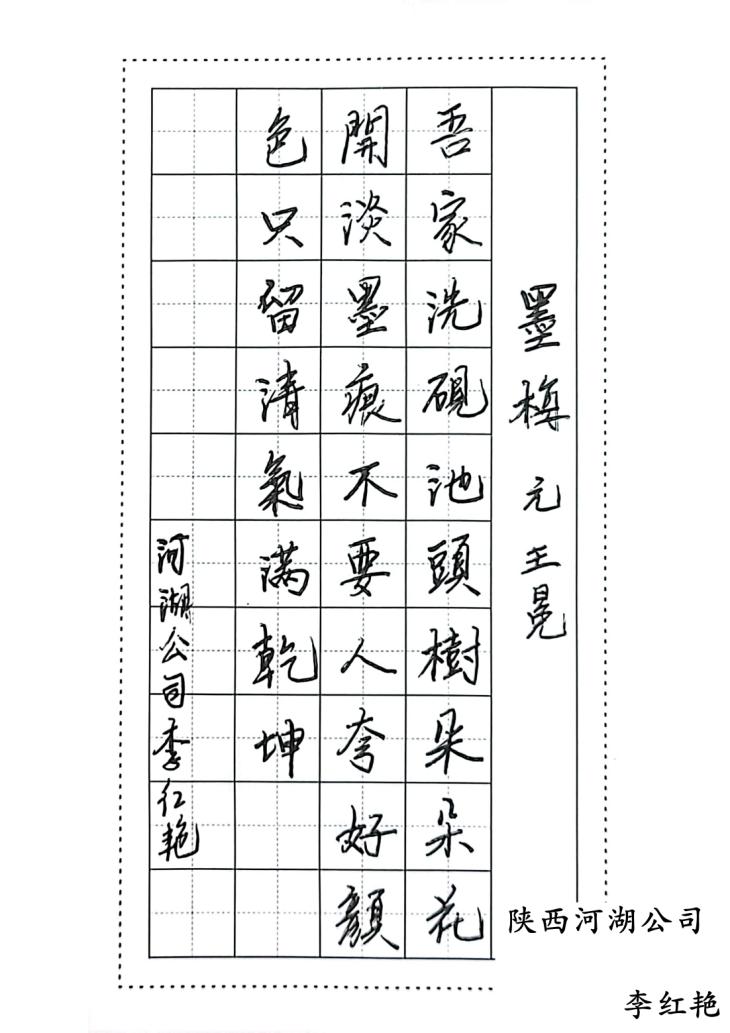 墨梅 元 王冕
吾家洗硯池頭樹朵朵花
開淡墨痕不要人夸好顏
色只留清氣满乾坤
河湖公司李红艳
陕西河湖公司
李红艳